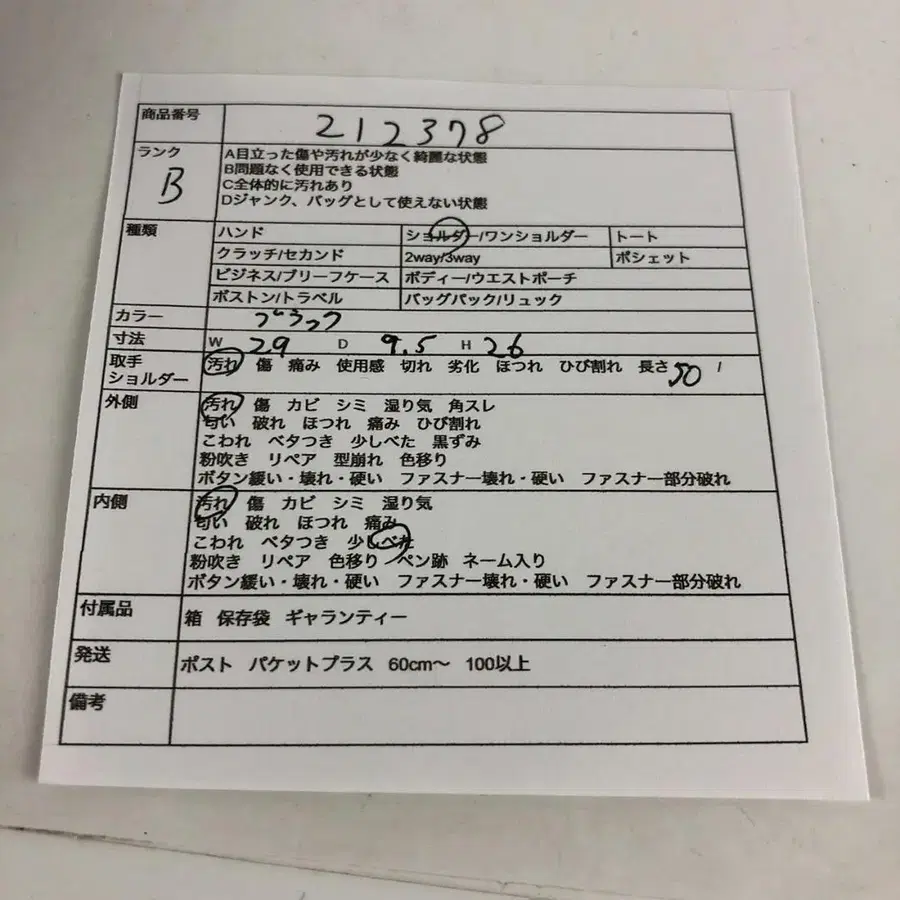 商品番号 212378
ランク B
A目立った傷や汚れが少なく綺麗な状態
B問題なく使用できる状態
C全体的に汚れあり
Dジャンク、バッグとして使えない状態
種類 ハンド ショルダー/ワンショルダー トート
クラッチ/セカンド 2way/3way ポシェット
ビジネス/ブリーフケース ボディー/ウエストポーチ
ボストン/トラベル バッグパック/リュック
カラー ブラック
寸法 W 29 D 9.5 H 26
取手 ショルダー 汚れ 傷 痛み 使用感 切れ 劣化 ほつれ ひび割れ 長さ 50 /
外側 汚れ 傷 カビ シミ 湿り気 角スレ
匂い 破れ ほつれ 痛み ひび割れ
こわれ ベタつき 少しべた 黒ずみ
粉吹き リペア 型崩れ 色移り
ボタン緩い・壊れ・硬い ファスナー壊れ・硬い ファスナー部分破れ
内側 汚れ 傷 カビ シミ 湿り気
匂い 破れ ほつれ 痛み
こわれ ベタつき 少しべた
粉吹き リペア 色移り ペン跡 ネーム入り
ボタン緩い・壊れ・硬い ファスナー壊れ・硬い ファスナー部分破れ
付属品 箱 保存袋 ギャランティー
発送 ポスト パケットプラス 60cm〜 100以上
備考